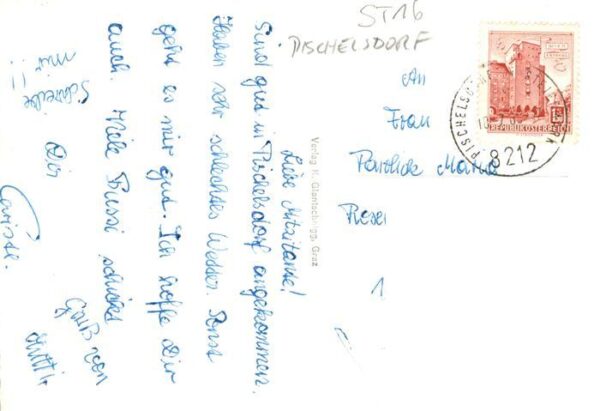 ST16
PISCHELSDORF
Liebe Mitzitante!
Sind gut in Pischelsdorf angekommen.
Haben sehr schlechtes Wetter. Sonst
geht es mir gut. Ich hoffe Dir
auch. Viele Bussi schickt
Dir
Schreibe
mir!!
Gruß von
Mutti
An
Frau
Maria
1
REPUBLIK ÖSTERREICH
8212
Verlag K. Graz